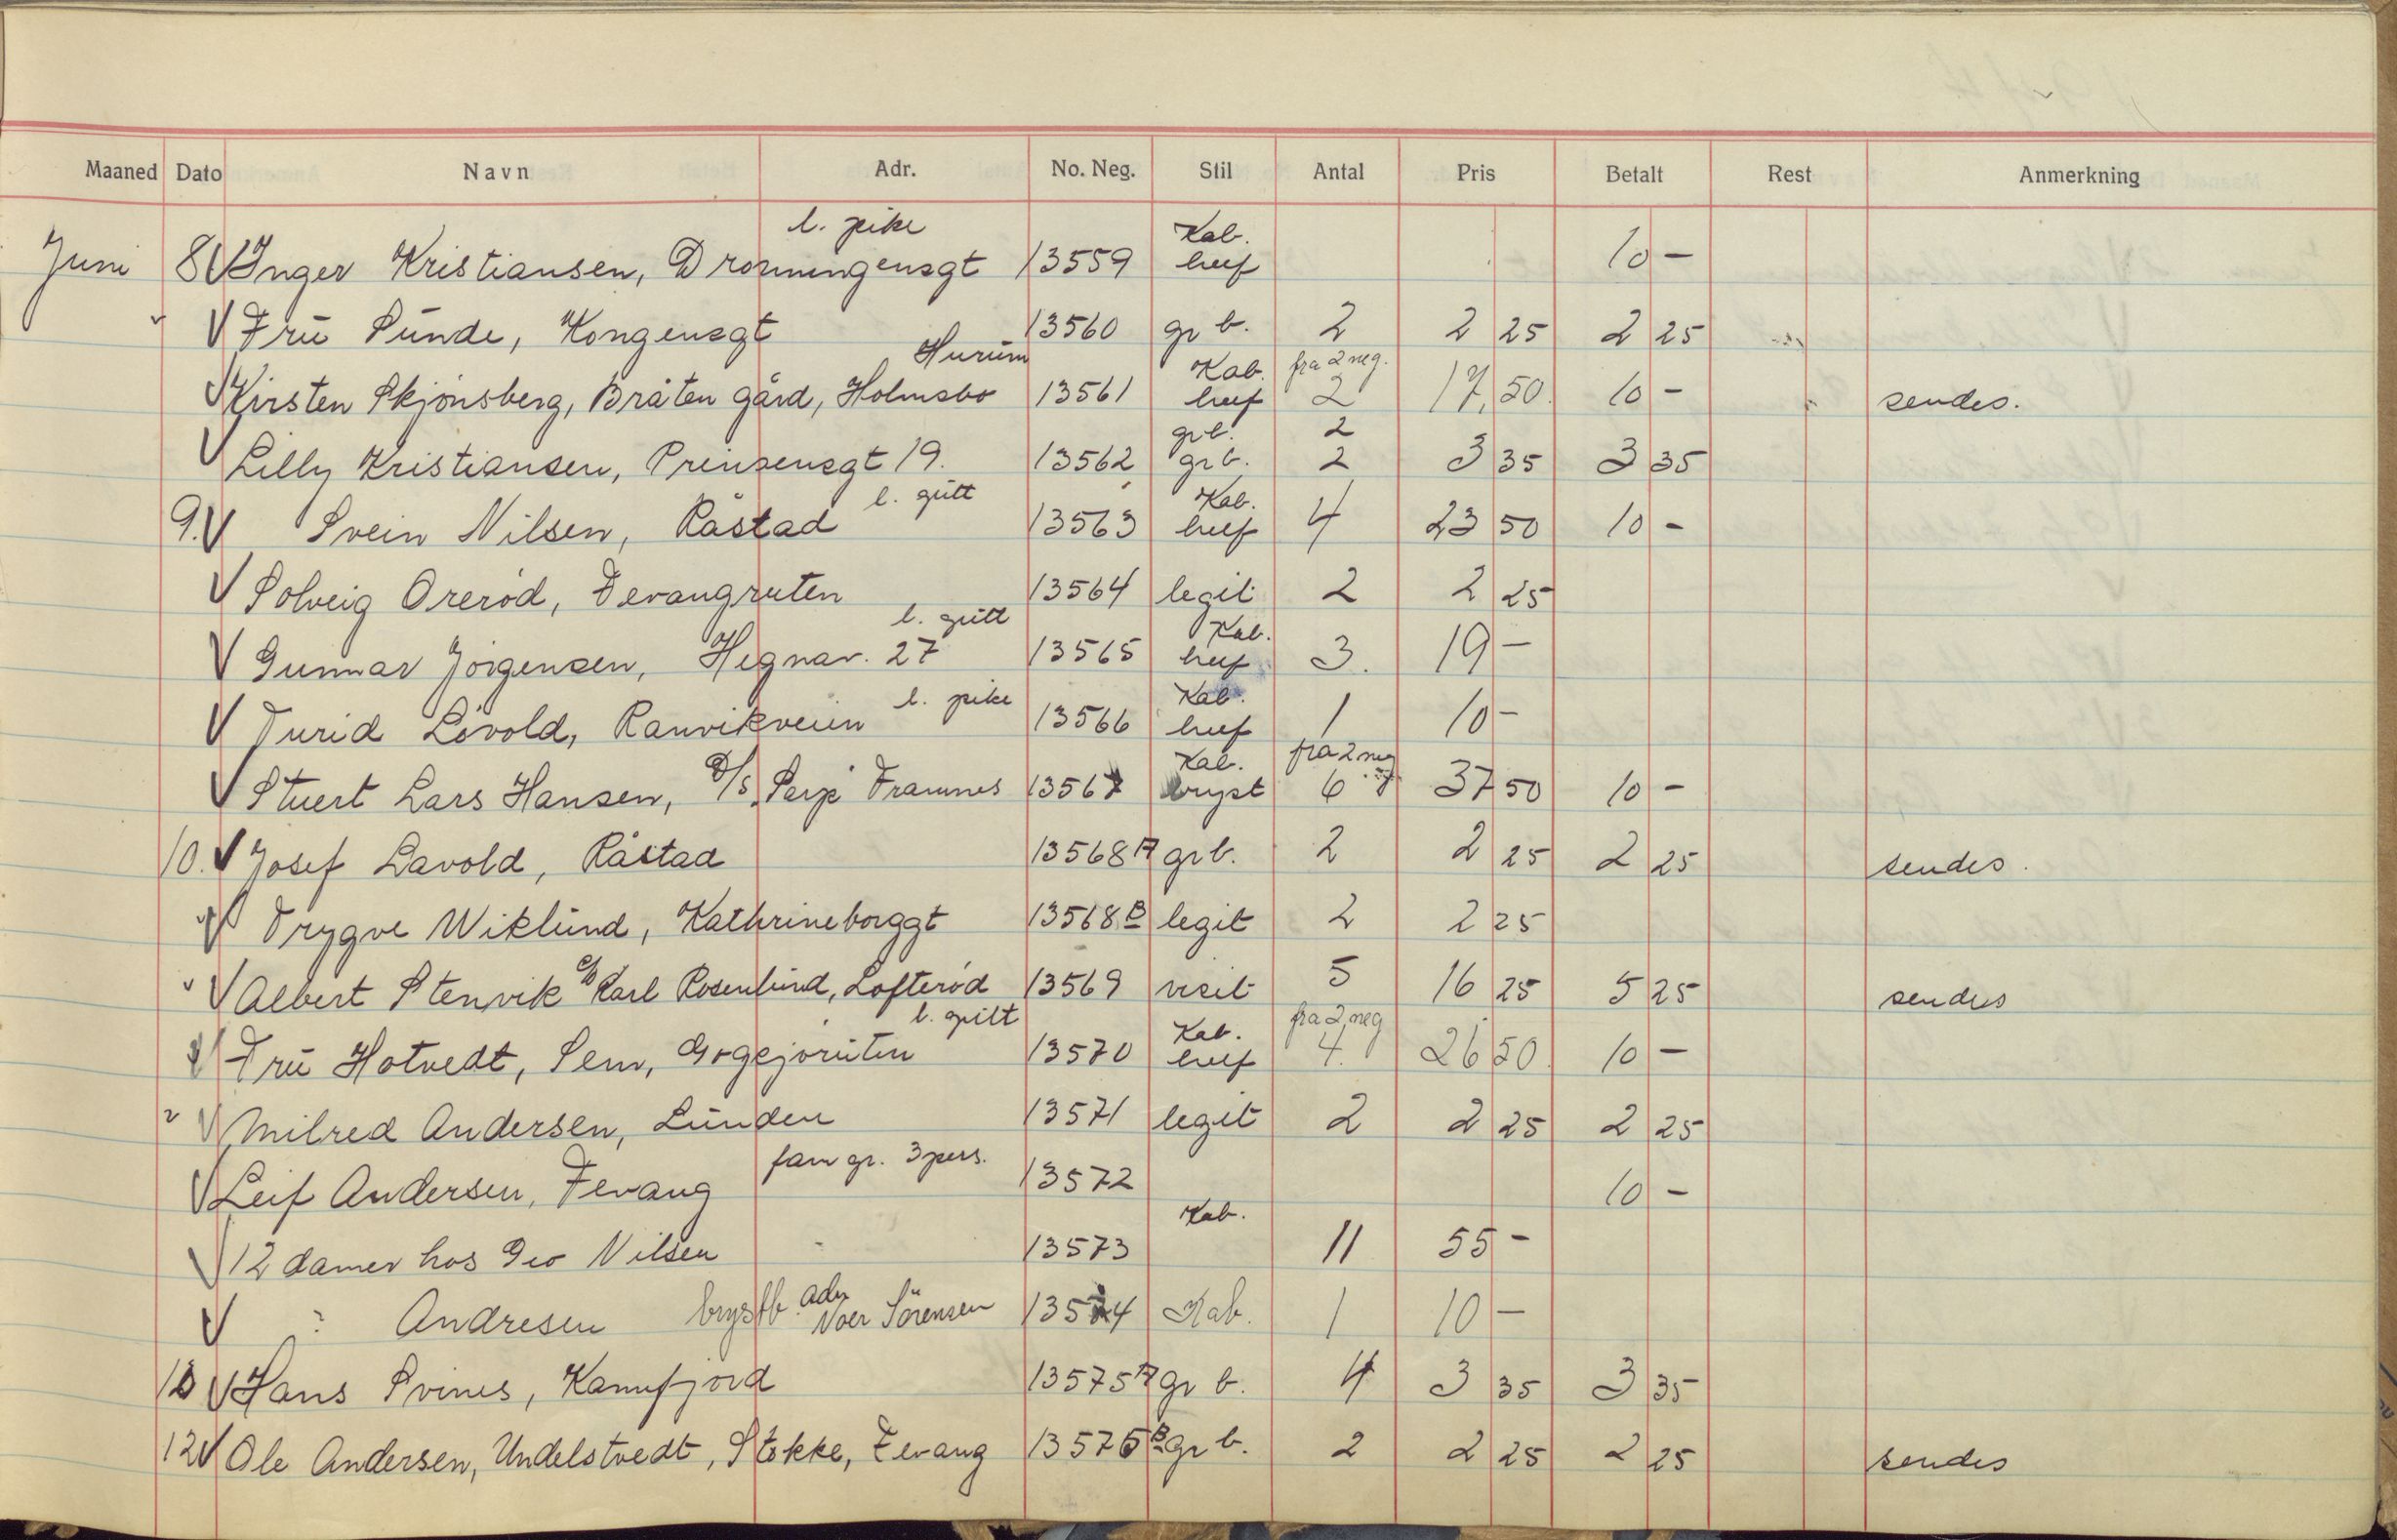 Maaned Dato Navn Adr. No. Neg. Stil Antal Pris Betalt Rest Anmerkning
l. pike Kab.
Juni 8 V Inger Kristiansen, Dronningensgt 13559 huf 10 -
V Frü Sünde, Kongensgt 13560 gr b. 2 2 25 2 25
Hurüm Kab. fra 2 neg.
V Kirsten Skjönsberg, Bråten gård, Holmsbo 13561 huf 2 17,50. 10 - sendes.
grb. 2
V Lilly Kristiansen, Prinsensgt 19. 13562 grb. 2 3 35 3 35
l. gütt Kab.
9. V Svein Nilsen, Råstad 13563 huf 4 23 50 10 -
V Solveig Oreröd, Fevangruten 13564 legit 2 2 25
l. gütt Kab.
V Gunnar Jörgensen, Hegnav. 27 13565 huf 3. 19 -
l. pike Kab.
V Turid Lövold, Ranvikveien 13566 huf 1 10 -
Kab. fra 2 neg
V Stuert Lars Hansen, D/S. Framnes 13567 bryst 6 37 50 10 -
10. V Josef Lavold, Råstad 13568 A gr b. 2 2 25 2 25 sendes.
V Trygve Wiklünd, Kathrineborggt 13568 B legit 2 2 25
V Albert Stenvik c/o Karl Rosenlünd, Lofteröd 13569 visit 5 16 25 5 25 sendes
l. gütt Kab. fra 2 neg
V Frü Hotvedt, Sem, 13570 huf 4. 26 50. 10 -
V Milred Andersen, Lünden 13571 legit 2 2 25 2 25
fam gr. 3 pers.
V Leif Andersen, Fevang 13572 10 -
Kab.
V 12 damer hos Geo Nilsen 13573 11 55 -
adr
V " Andresen brystb. Noer Sörensen 13574 Kab. 1 10 -
V Hans Svines, Kamfjord 13575 A gr b. 4 3 35 3 35
12 V Ole Andersen, Undelstvedt, Stokke, Fevang 13575 B gr b. 2 2 25 2 25 sendes